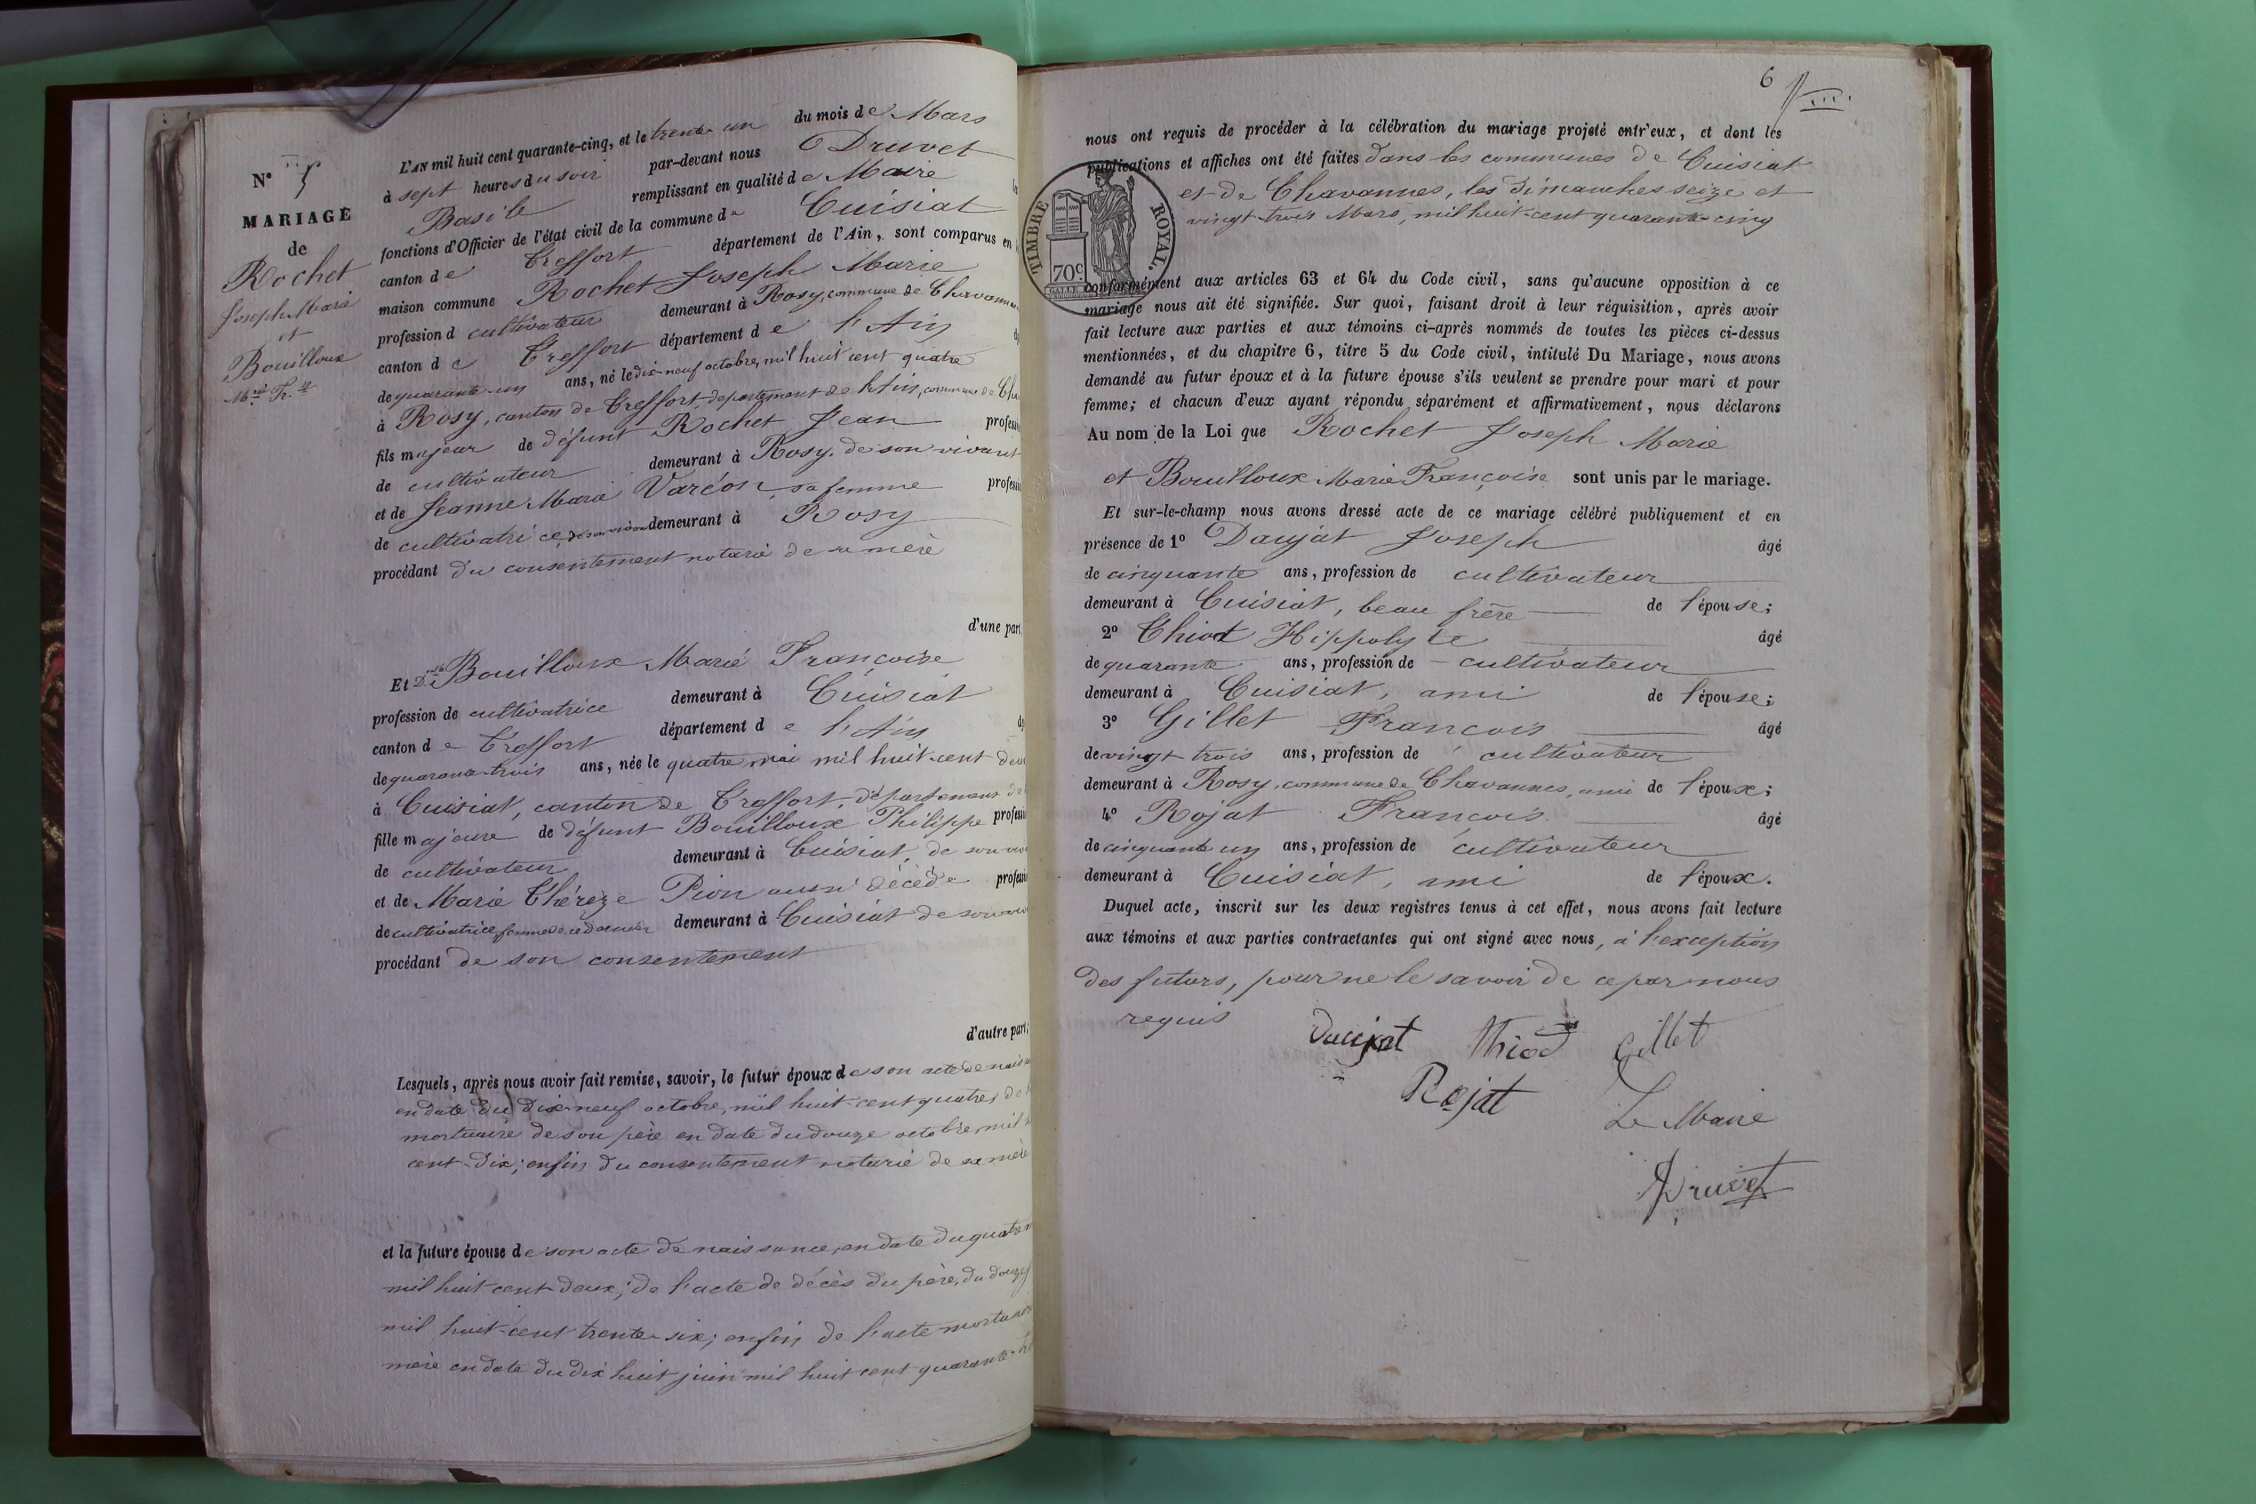 N° 5
MARIAGE
de
Rochet
Joseph Marie
et
Bouilloux
Mie Fse
L'AN mil huit cent quarante-cinq, et le trente un du mois de Mars
à sept heures du soir par-devant nous Druvet
Basile remplissant en qualité de Maire
fonctions d'Officier de l'état civil de la commune de Cuisiat
canton de Treffort département de l'Ain, sont comparus en
maison commune Rochet Joseph Marie
profession d cultivateur demeurant à Rosy, commune de Chavannes
canton de Treffort département de l'Ain
de quarante-un ans, né le dix-neuf octobre, mil huit cent quatre
à Rosy, canton de Treffort, département de l'Ain, commune de
fils majeur de défunt Rochet Jean
de cultivateur demeurant à Rosy, de son vivant
et de Jeanne Marie Varéon, sa femme
de cultivatrice, demeurant à Rosy
procédant du consentement notarié de sa mère
d'une part
Et Dlle Bouilloux Marie Françoise
profession de cultivatrice demeurant à Cuisiat
canton de Treffort département de l'Ain
de quarante-trois ans, née le quatre mai mil huit-cent
à Cuisiat, canton de Treffort, département de
fille majeure de défunt Bouilloux Philippe
de cultivateur demeurant à Cuisiat, de son
et de Marie Thérèze Pion aussi décédée
de cultivatrice femme de ce dernier demeurant à Cuisiat de son
procédant de son consentement
d'autre part;
Lesquels, après nous avoir fait remise, savoir, le futur époux de son acte de
en date du dix-neuf octobre, mil huit-cent quatre, de
mortuaire de son père en date du douze octobre, mil
cent-dix; enfin du consentement notarié de sa mère
et la future épouse de son acte de naissance, en date du quatre
mil huit-cent-deux; de l'acte de décès du père, du douze
mil huit-cent trente-six; enfin de l'acte
mère en date du dix huit juin mil huit cent quarante
6
nous ont requis de procéder à la célébration du mariage projeté entr'eux, et dont les
publications et affiches ont été faites dans les communes de Cuisiat
et de Chavannes, les dimanches seize et
vingt-trois Mars, mil huit-cent quarante-cinq
TIMBRE ROYAL.
70c.
conformément aux articles 63 et 64 du Code civil, sans qu'aucune opposition à ce
mariage nous ait été signifiée. Sur quoi, faisant droit à leur réquisition, après avoir
fait lecture aux parties et aux témoins ci-après nommés de toutes les pièces ci-dessus
mentionnées, et du chapitre 6, titre 5 du Code civil, intitulé Du Mariage, nous avons
demandé au futur époux et à la future épouse s'ils veulent se prendre pour mari et pour
femme; et chacun d'eux ayant répondu séparément et affirmativement, nous déclarons
Au nom de la Loi que Rochet Joseph Marie
et Bouilloux Marie Françoise sont unis par le mariage.
Et sur-le-champ nous avons dressé acte de ce mariage célébré publiquement et en
présence de 1° Daujat Joseph âgé
de cinquante ans, profession de cultivateur
demeurant à Cuisiat, beau frère de l'épouse;
2° Thiod Hippolyte âgé
de quarante ans, profession de cultivateur
demeurant à Cuisiat, ami de l'épouse;
3° Gillet François âgé
de vingt trois ans, profession de cultivateur
demeurant à Rosy, commune de Chavannes, ami de l'époux;
4° Rojat François âgé
de cinquante un ans, profession de cultivateur
demeurant à Cuisiat, ami de l'époux.
Duquel acte, inscrit sur les deux registres tenus à cet effet, nous avons fait lecture
aux témoins et aux parties contractantes qui ont signé avec nous, à l'exception
des futurs, pour ne le savoir de ce par nous
requis
Daujat Thiod Gillet
Rojat Le Maire
Druvet